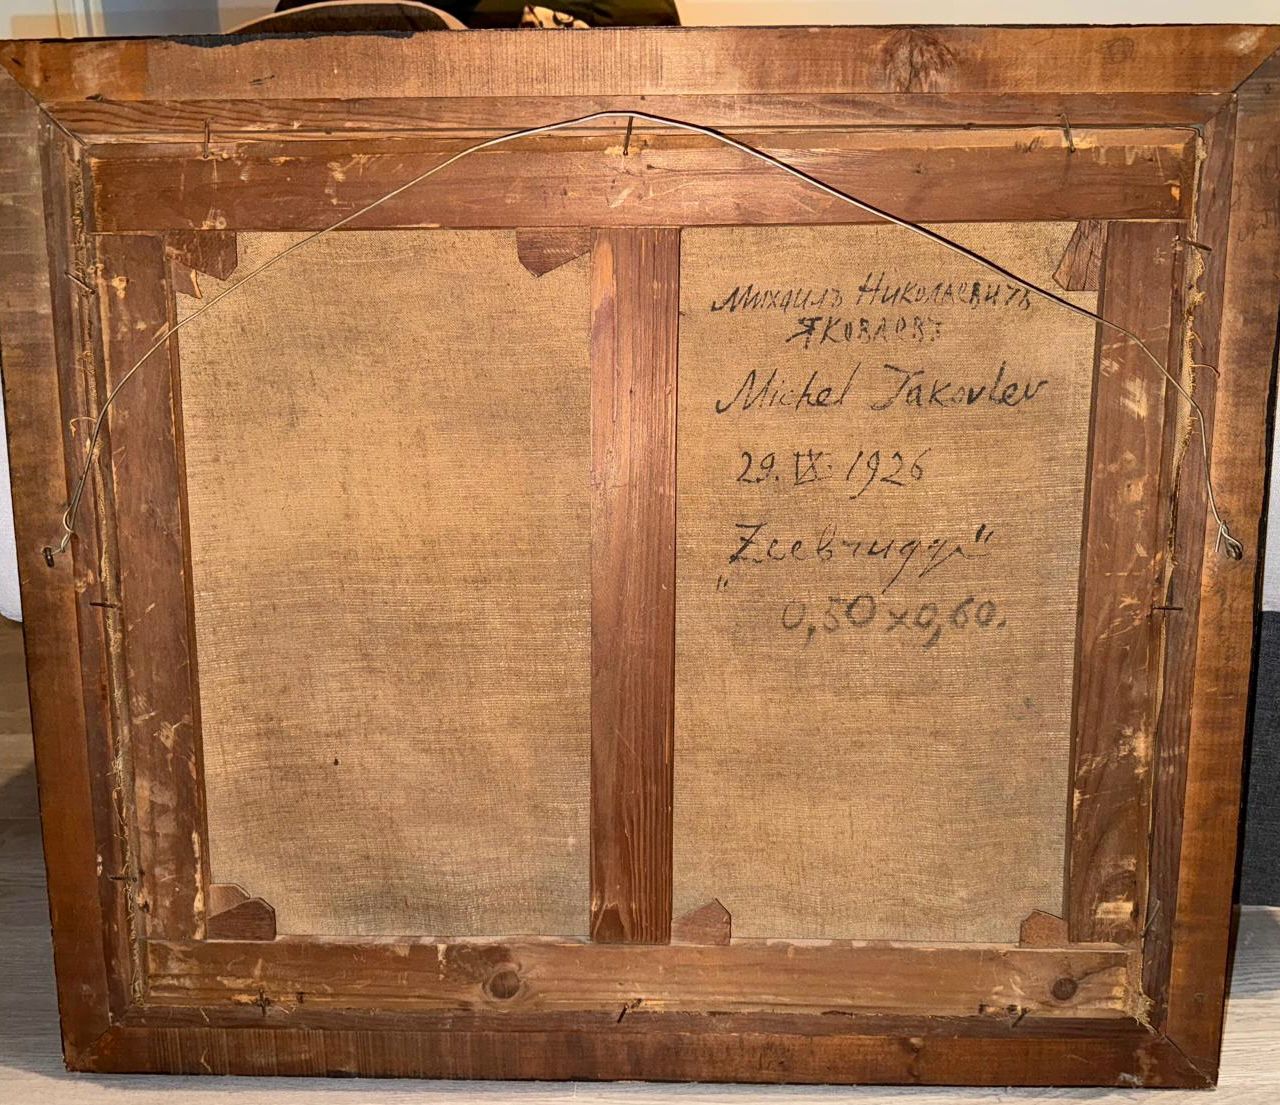 Михаилъ Николаевичъ
Яковлевъ
Michel Jakovlev
29. IX. 1926
„Zeebrugge"
0,50 x 0,60.